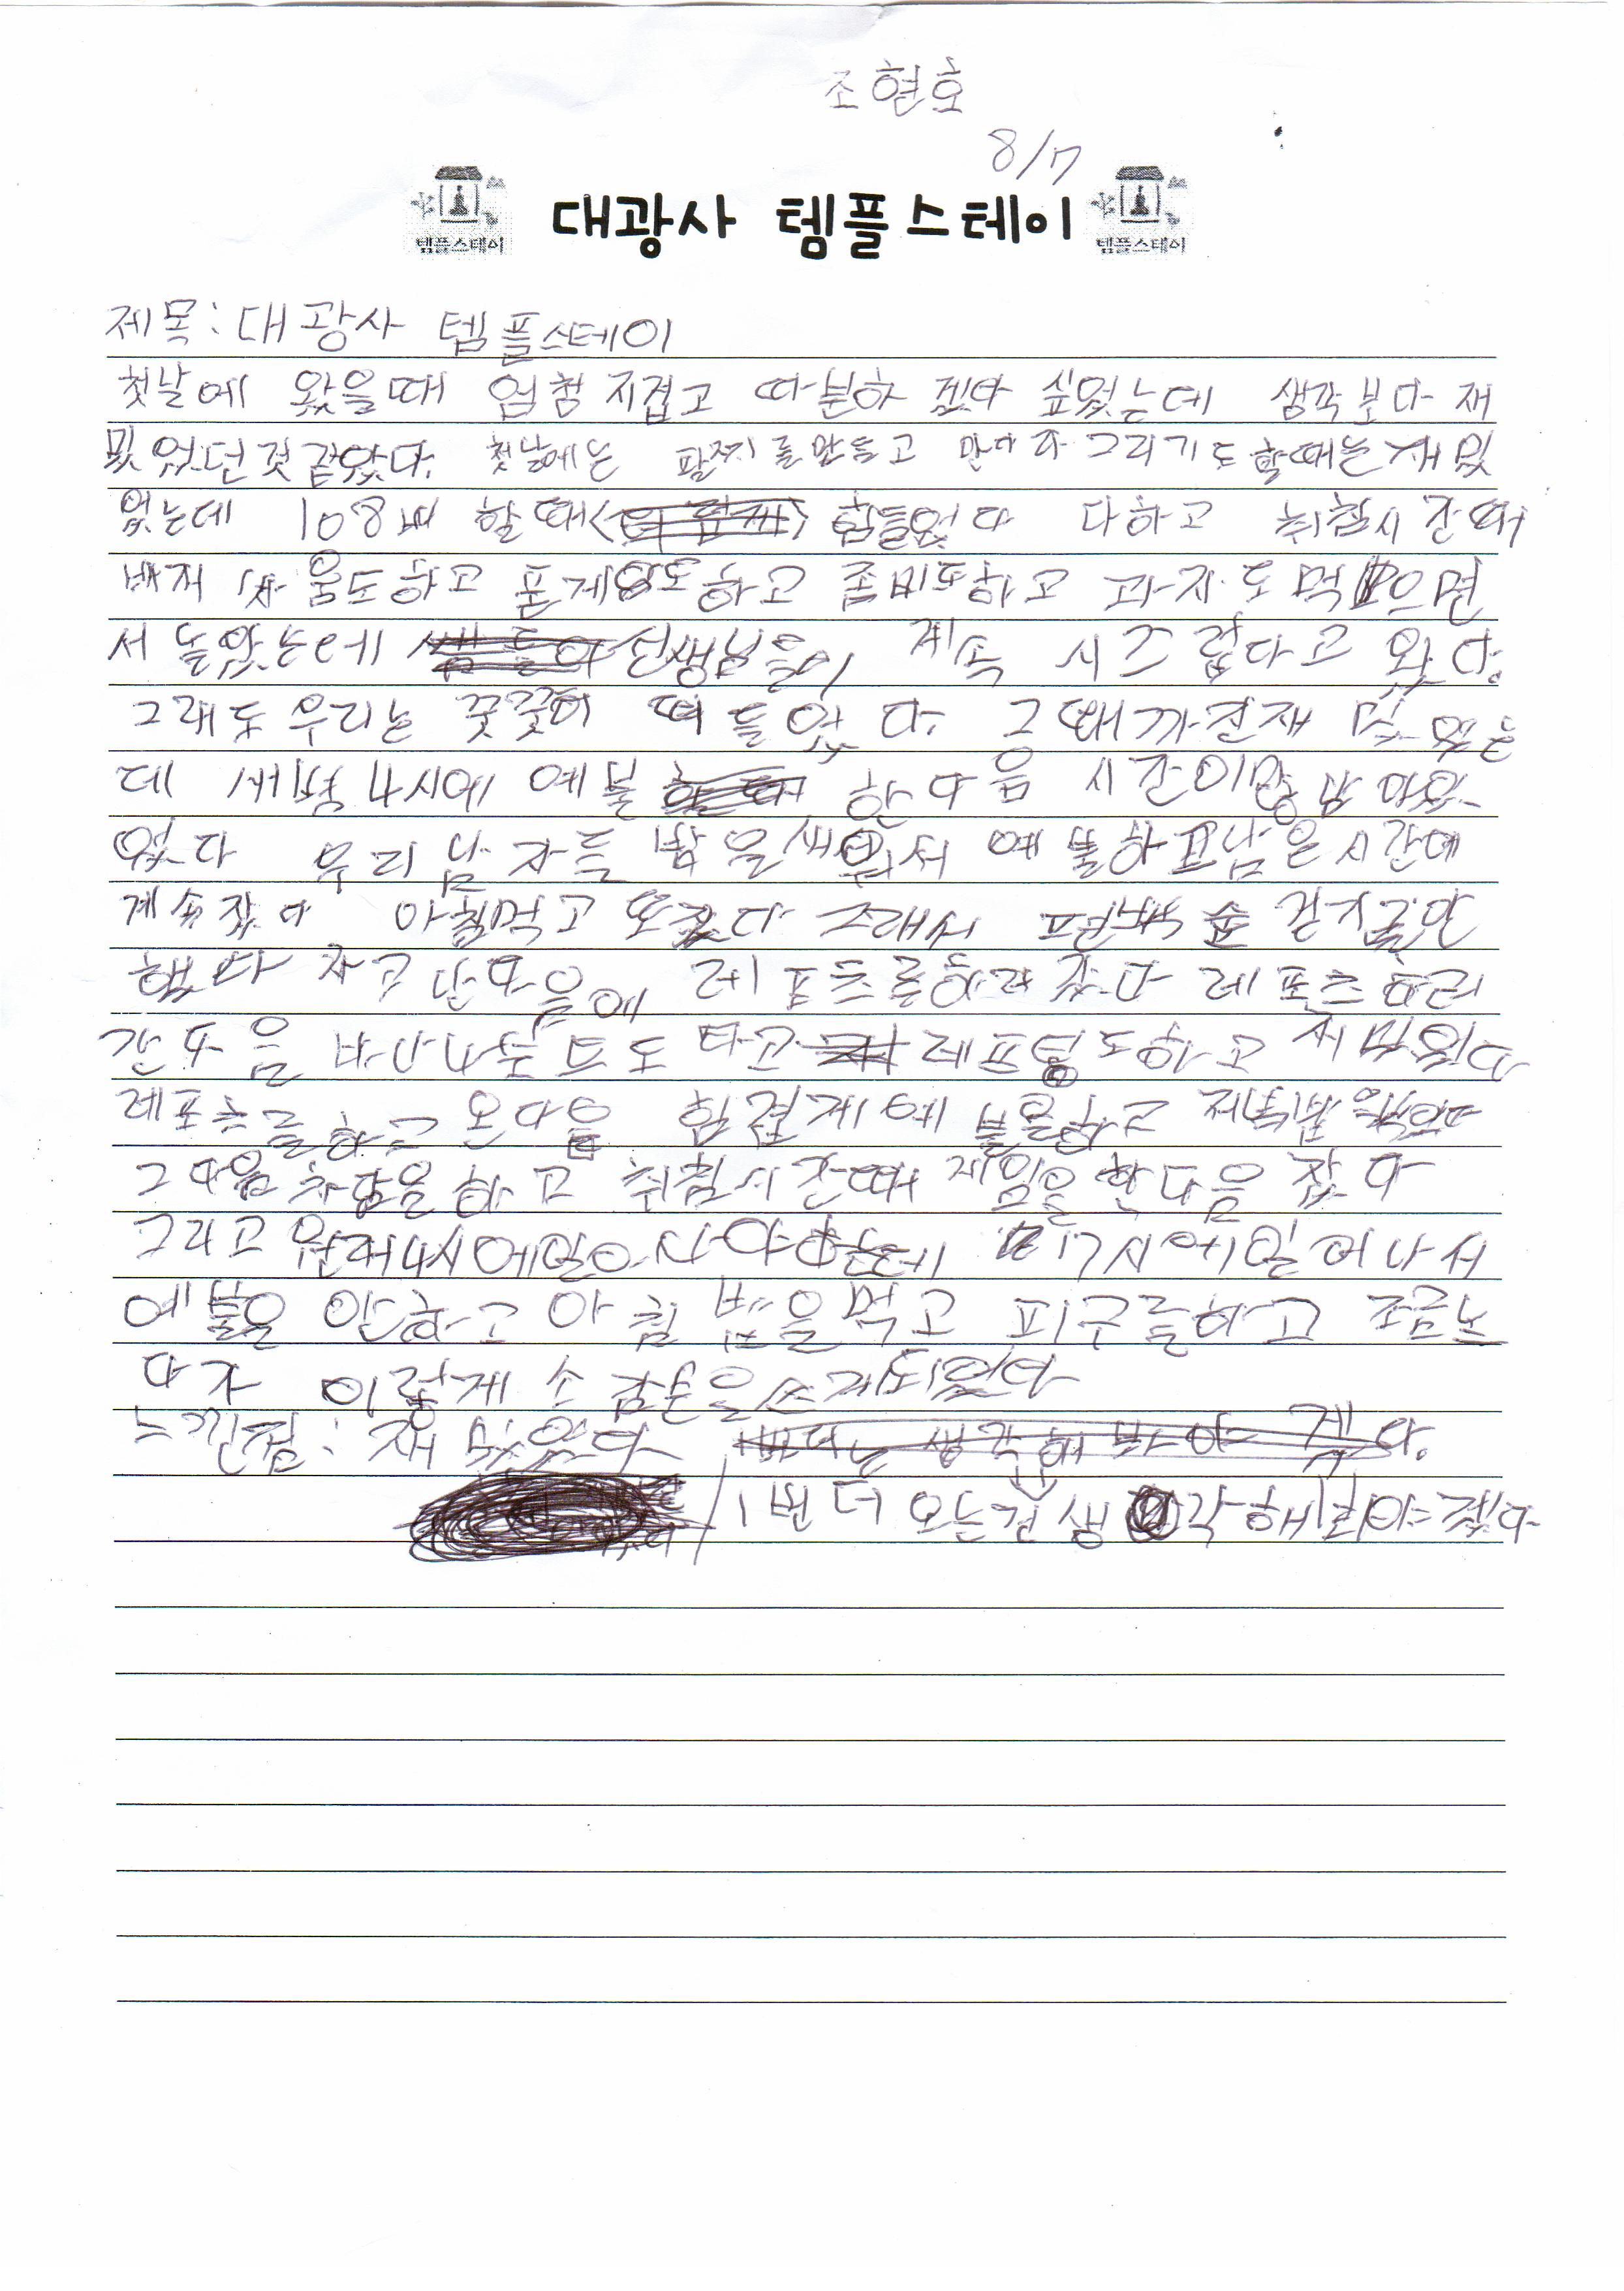 조현호
8/7
템플스테이 대광사 템플스테이 템플스테이
제목: 대광사 템플스테이
첫날에 왔을때 엄청 지겹고 따분하겠다 싶었는데 생각보다 재
밌었던것같았다. 첫날에는 팔찌를만들고 만다라그리기도할때는재밌
었는데 108배 할때 힘들었다 다하고 취침시간때
베게 싸움도하고 폰게임도하고 좀비도하고 과자도먹으면
서 놀았는데 선생님들이 계속 시끄럽다고 왔다.
그래도우리는 꿋꿋히 떠들었다. 그때까진재밌었는
데 새벽4시에 예불 한다음 시간이
었다 우리남자들 밤을새워서 예불하고남은시간에
계속잤다 아침먹고 또잤다 그래서 걷지를안
했다 자고난다음에 레포츠를하러갔다 레포츠하러
간다음 바나나보트도 타고 레프팅도하고 재밌었다
레포츠를하고 온다음 힘겹게예불을하고 저녁밥을먹었다
그다음차담을하고 취침시간때 게임을한다음 잤다
그리고 원래4시에일어나야하는데 7시에일어나서
예불을 안하고 아침밥을먹고 피구를하고 조금논
다가 이렇게 소감문을쓰게되었다
느낀점: 재밌었다
1번더 오는건 생각해봐야겠다